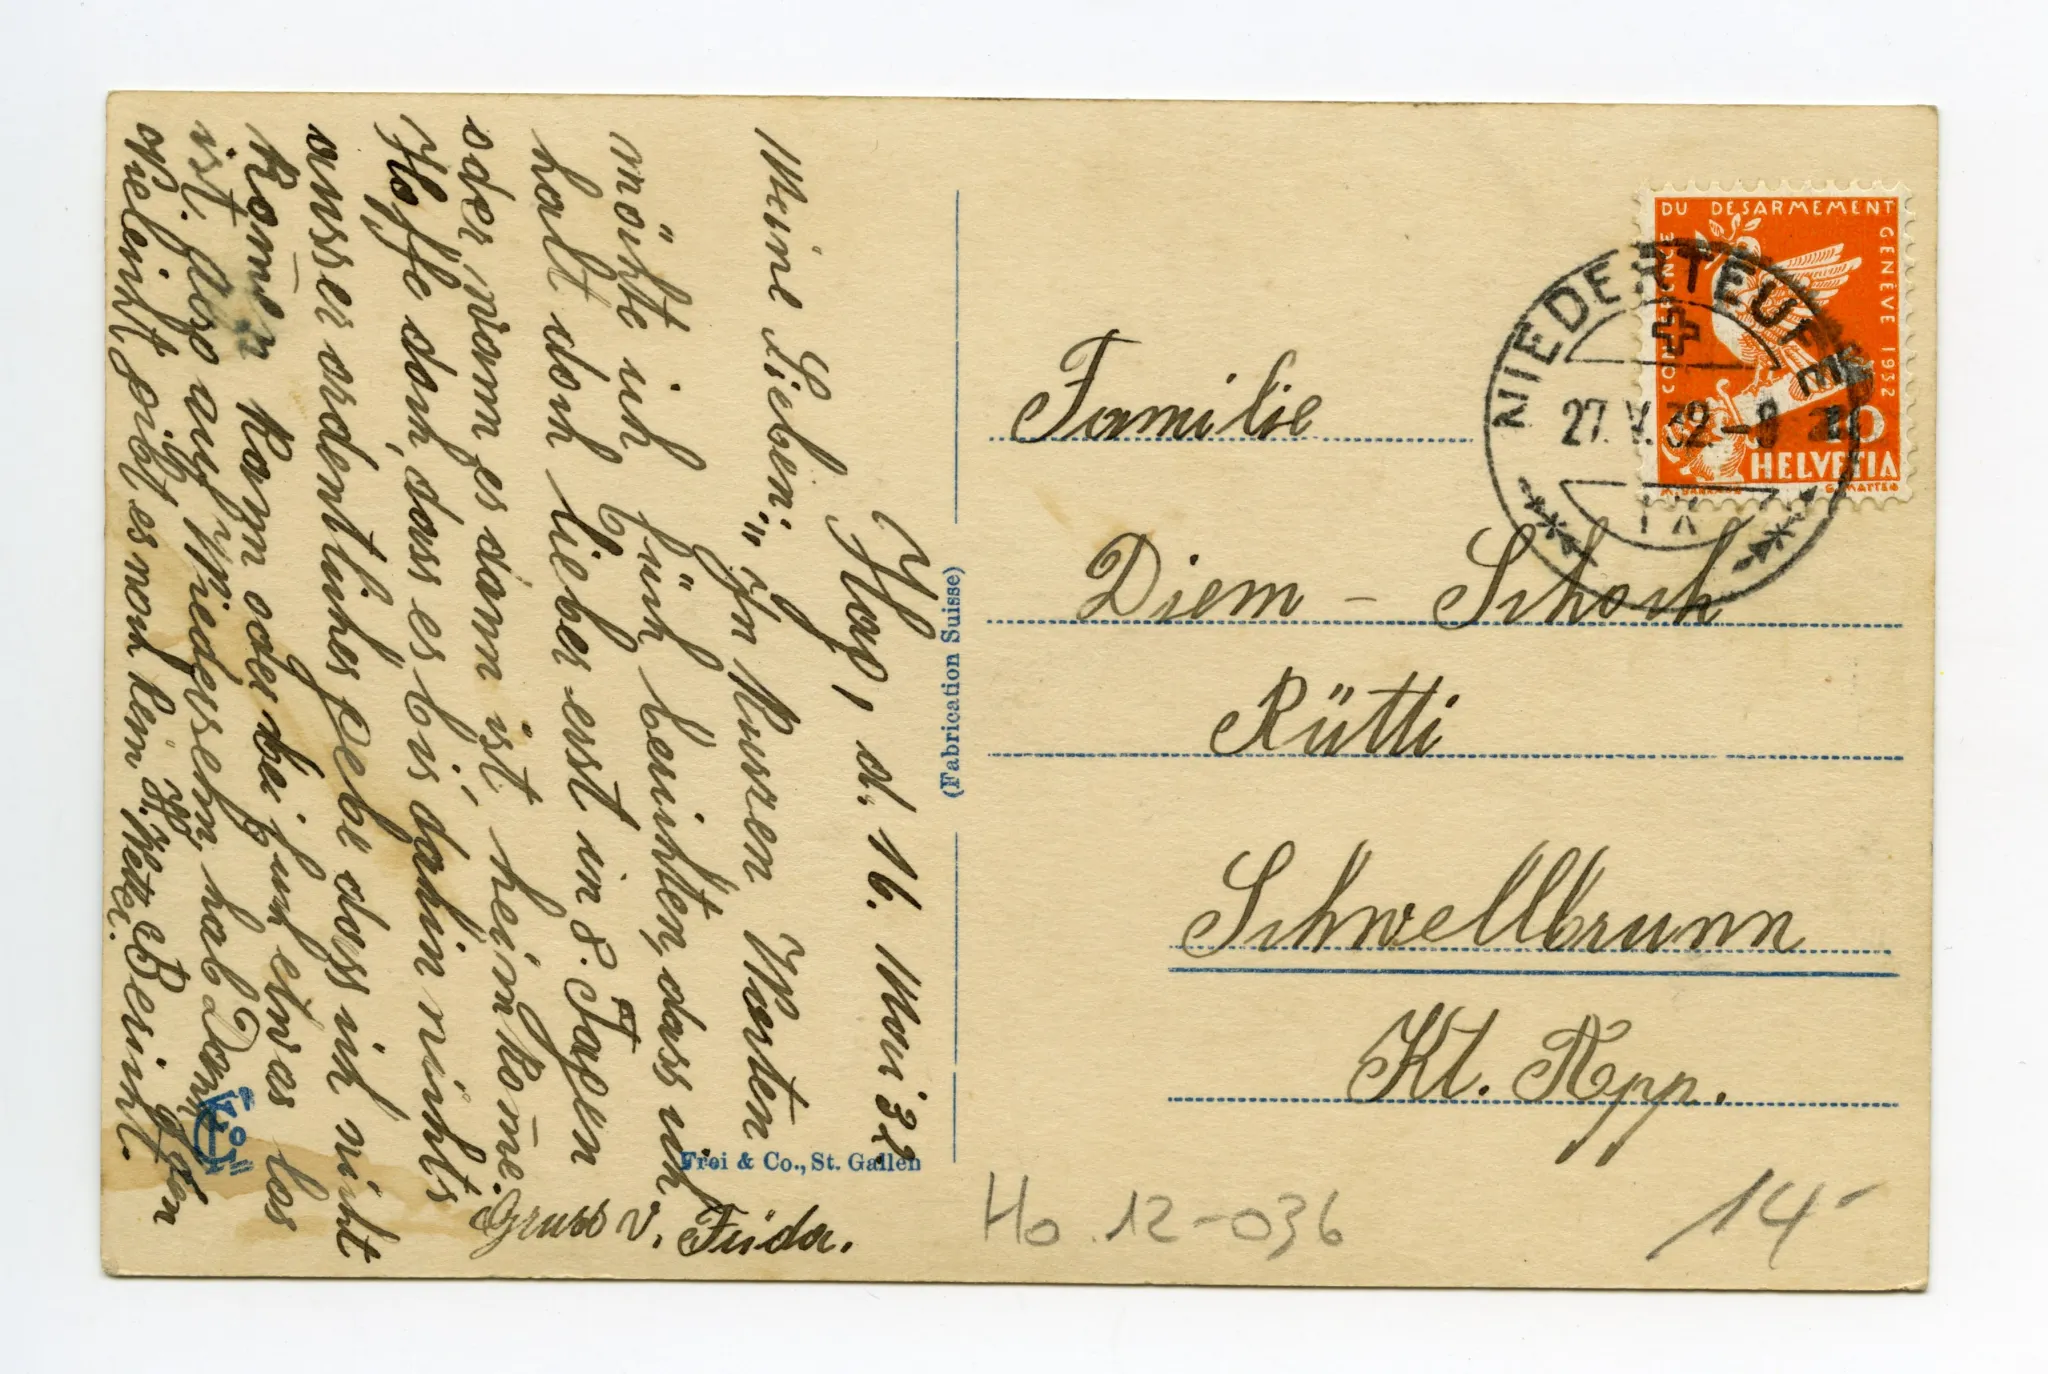 Hag, d. 16. Mai 32
Meine Lieben! In kurzen Worten
möchte ich Euch berichten, dass ich
halt doch lieber erst in 8 Tagen
oder wann es dann ist, heimkom̄e.
Hoffe doch, dass es bis dahin nichts
ausserordentliches gebe dass ich nicht
kom̄en kann oder bei Euch etwas los
ist. Also auf Wiedersehn, hab Dann gern
Bericht.
Vielleicht gibt es noch kein Wetter.
Gruss v. Frida.
(Fabrication Suisse)
Frei & Co., St. Gallen
Familie
Diem - Schoch
Rütti
Schwellbrunn
Kt. App.
Ho. 12-036
14-
CONFERENCE DU DESARMEMENT GENÈVE 1932
10
HELVETIA
NIEDERTEUFEN
27. V. 32. - 8